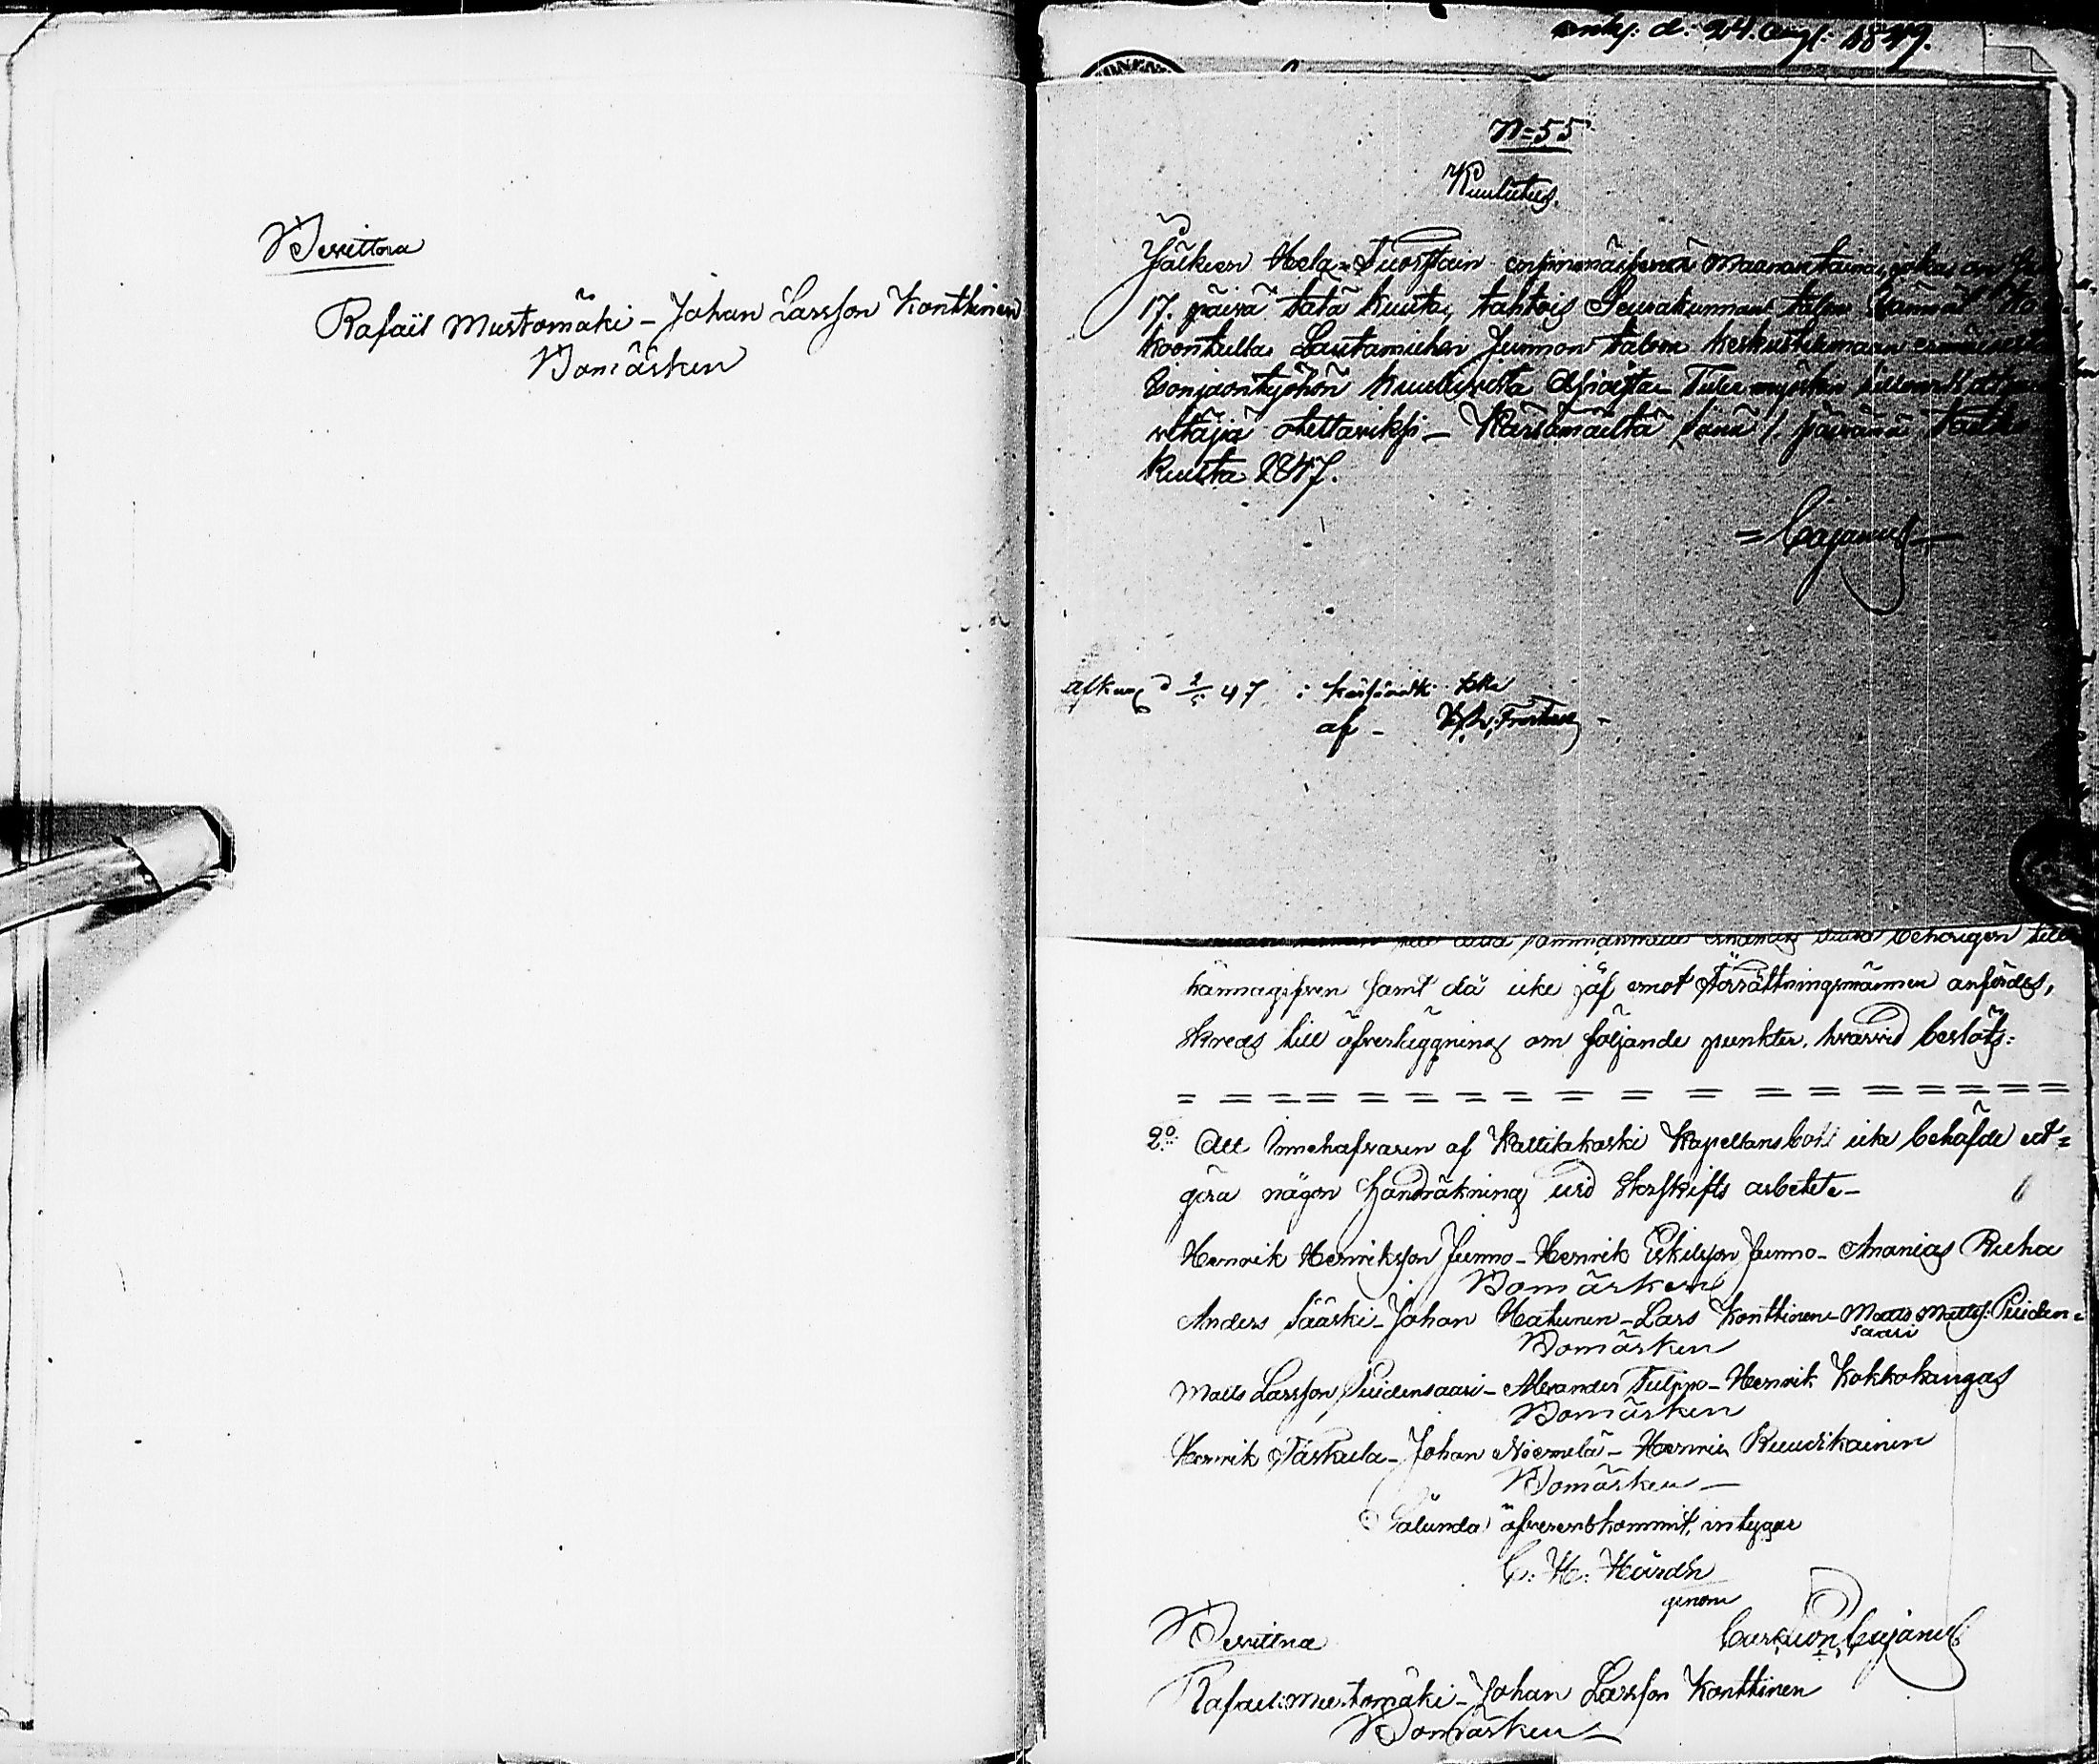 Bevittna
Rafaël Mustomäki – Johan Larsson Konttinen
Bomärken
d: 24. Aug: 1849.
N=55
Kuulutus.
Jälkeen Hela-Tuorstain ensimmäisenä Maanantaina, joka on
17. päivä tätä kuuta, tahtois Seurakunnan talon Isännät
koontulla Lautamiehen Junnon talon keskustelemaan
Isonjaontyöhön kuuluvista Asioista
otettaviksi – Kärsämäeltä sinä 1. päivänä
kuuta 1847.
= Cajanus –
af –
behörigen
hännagifven samt då icke jäf emot Förrättningsmännen anfördes,
skreds till öfverläggning om följande punkter, hvarvid beslöts:
= = = = = = = = = = = = = = = = = =
2º Att Innehafvaren af Kapellans bol icke behöfde ut=
göra någon handräkning vid Storskifts arbetet –
Henrik Henriksson Junno – Henrik Eskilsson Junno – Ananias Ruha
Bomärken
Anders Sääski – Johan Hatunen – Lars Konttinen – Matts Matts: Puiden=
saari
Bomärken
Matts Larsson Puidensaari – Alexander Tulppo – Henrik Kokkokangas
Bomärken
Henrik Päskula – Johan Niemelä – Henric Ruuskainen
Bomärken –
Sålunda öfverenskommit, intygar
C: H: Hårdh
genom
Bevittna
Cajanus
Rafael Mustomäki – Johan Larsson Konttinen
Bomärken –